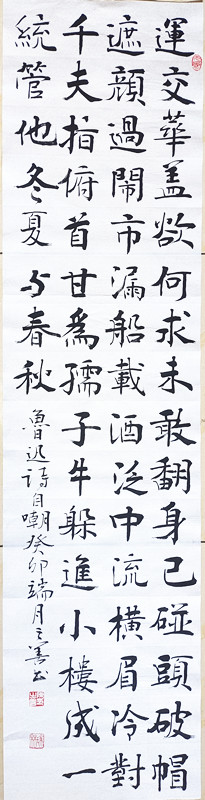 運交華盖欲何求未敢翻身已碰頭破帽
遮顔過鬧市漏船載酒泛中流橫眉冷對
千夫指俯首甘爲孺子牛躲進小樓成一
統管他冬夏与春秋
魯迅詩自嘲癸卯端月之善书